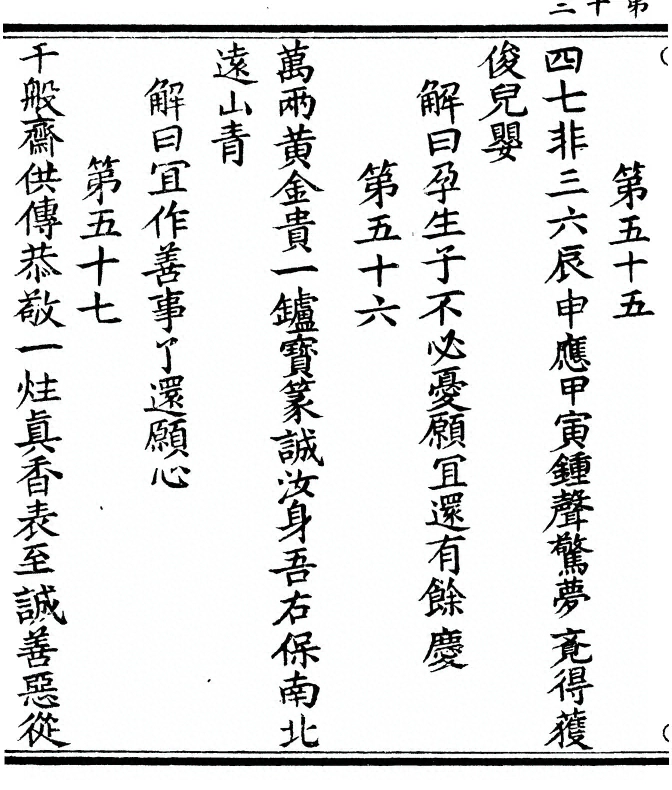 第十三
第五十五
四七非三六辰申應甲寅鍾聲驚夢竟得獲
俊兒嬰
解曰孕生子不必憂願冝還有餘慶
第五十六
萬兩黃金貴一鑪寶篆誠汝身吾右保南北
遠山青
解曰冝作善事了還願心
第五十七
千般齋供傳恭敬一炷眞香表至誠善惡從